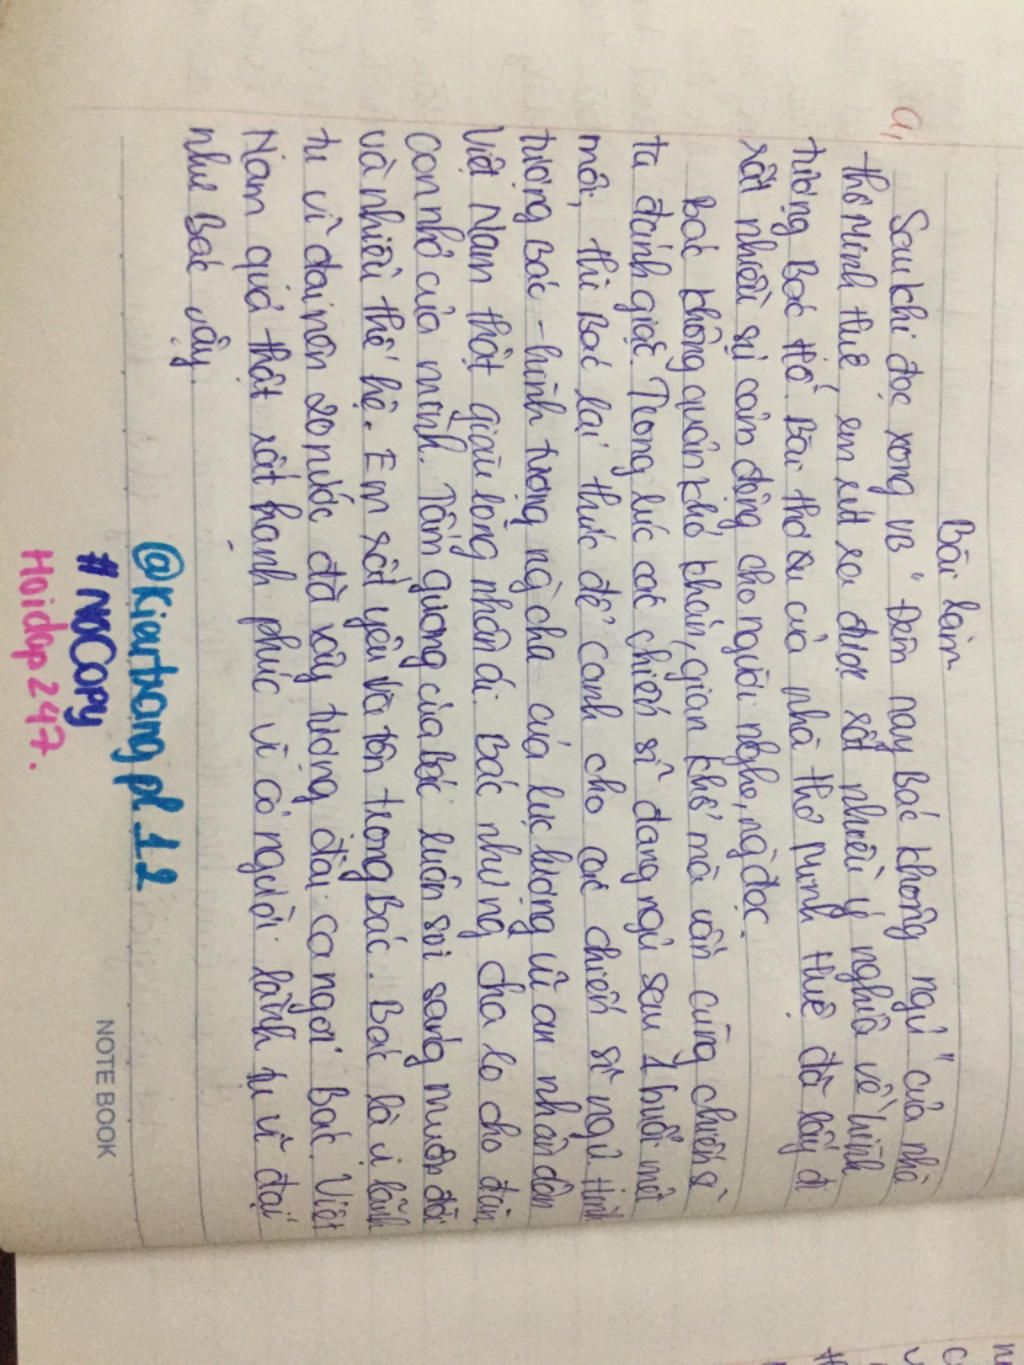 Bài làm
a,
Sau khi đọc xong VB " Đêm nay Bác không ngủ " của nhà
thơ Minh Huệ, em rút ra được rất nhiều ý nghĩa về hình
tượng Bác Hồ. Bài thơ của nhà thơ Minh Huệ đã lấy đi
rất nhiều sự cảm động cho người nghe, ng đọc.
Bác không quản khó khăn, gian khổ mà vẫn cùng chiến sĩ
ta đánh giặc. Trong lúc các chiến sĩ đang ngủ sau 1 buổi mệt
mỏi, thì Bác lại thức để canh cho các chiến sĩ ngủ. Hình
tượng Bác - hình tượng ng cha của lực lượng vũ an nhân dân
Việt Nam thật giàu lòng nhân ái. Bác như ng cha lo cho đàn
con nhỏ của mình. Tấm gương của bác luôn soi sáng muôn đời
và nhiều thế hệ. Em rất yêu và tôn trọng Bác. Bác là vị lãnh
tụ vĩ đại nên 20 nước đã xây tượng đài ca ngợi Bác. Việt
Nam quả thật rất hạnh phúc vì có người lãnh tụ vĩ đại
như Bác vậy.
@kieutrangpl12
# NOCOPY
Hoidap247.
NOTE BOOK